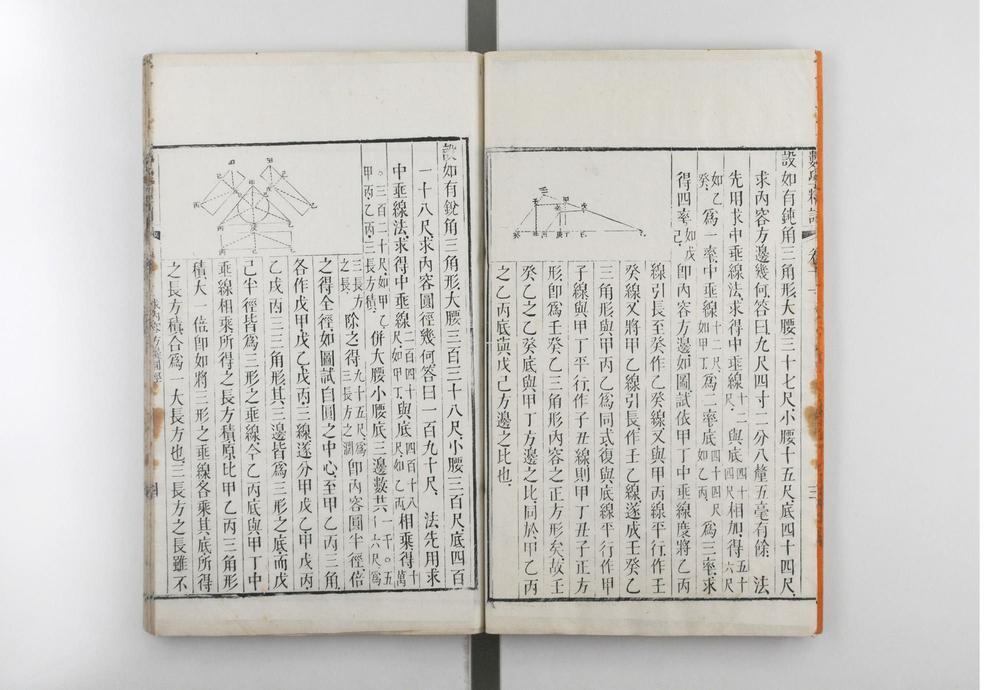 設如有鈍角三角形大腰三十七尺小腰十五尺底四十四尺
求內容方邊幾何答曰九尺四寸二分八釐五毫有餘　法
先用求中垂線法求得中垂線十二尺與底四十四尺相加得五十六尺
如乙癸爲一率中垂線十二尺如甲丁爲二率底四十四尺如乙丙爲三率求
得四率如戊己即內容方邊如圖試依甲丁中垂線度將乙丙
線引長至癸作乙癸線又與甲丙線平行作壬
癸線又將甲乙線引長作壬乙線遂成壬癸乙
三角形與甲丙乙爲同式復與底線平行作甲
子線與甲丁平行作子丑線則甲丁丑子正方
形即爲壬癸乙三角形內容之正方形矣故壬
癸乙之乙癸底與甲丁方邊之比同於甲乙丙
之乙丙底與戊己方邊之比也
設如有銳角三角形大腰三百三十八尺小腰三百尺底四百
一十八尺求內容圓徑幾何答曰一百九十尺　法先用求
中垂線法求得中垂線二百四十尺如甲丁與底四百一十八尺如乙丙相乘得十萬
〇三百二十尺如甲乙甲丙乙丙三長方積併大腰小腰底三邊數共一千〇五十六尺爲
三長方之長除之得九十五尺爲三長方之濶即內容圓半徑倍
之得全徑如圖試自圓之中心至甲乙丙三角
各作戊甲戊乙戊丙三線遂分甲戊乙甲戊丙
乙戊丙三三角形其三邊皆爲三形之底而戊
己半徑皆爲三形之垂線今乙丙底與甲丁中
垂線相乘所得之長方積原比甲乙丙三角形
積大一倍即如將三形之垂線各乘其底所得
之長方積合爲一大長方也三長方之長雖不